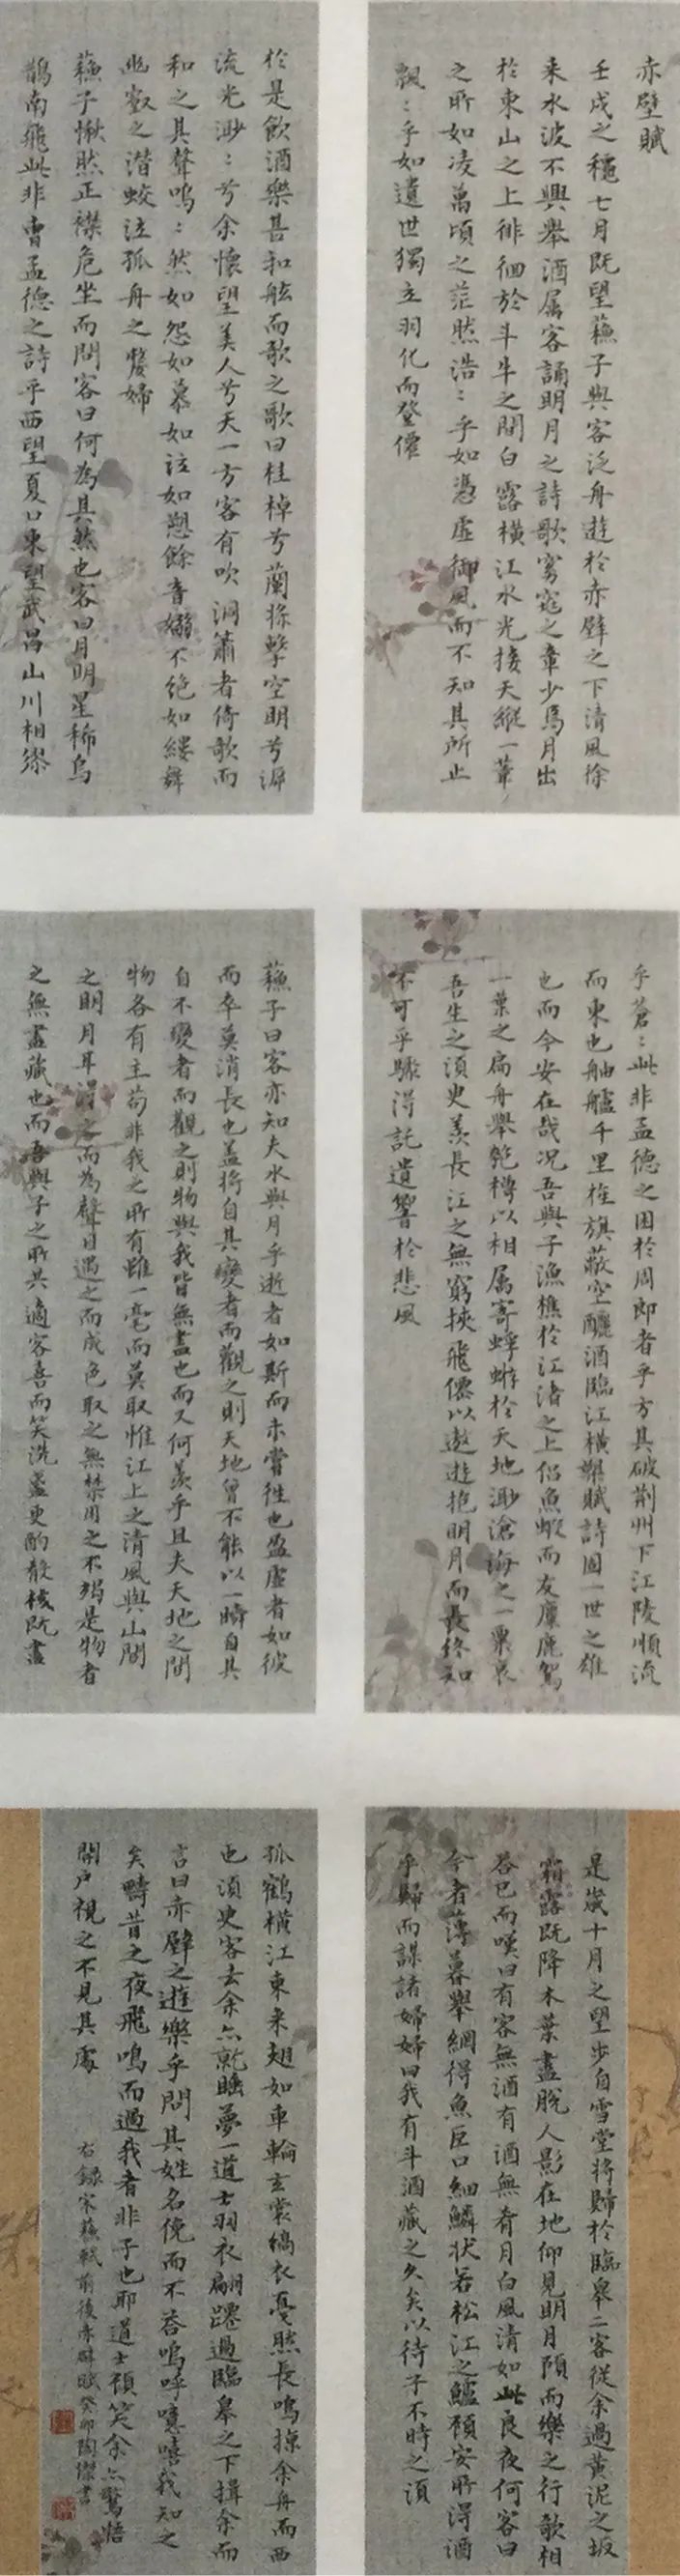 赤壁賦
壬戌之穐七月既望蘓子與客泛舟遊於赤壁之下清風徐
来水波不興舉酒属客誦明月之詩歌窈窕之章少焉月出
於東山之上徘徊於斗牛之間白露横江水光接天縱一葦
之所如凌萬頃之茫然浩：乎如憑虚御風而不知其所止
飄：乎如遺世獨立羽化而登僊
於是飲酒樂甚和舷而歌之歌曰桂棹兮蘭槳擊空明兮泝
流光渺：兮余懷望美人兮天一方客有吹洞簫者倚歌而
和之其聲嗚：然如怨如慕如泣如愬餘音嫋不绝如縷舞
幽壑之潛蛟泣孤舟之嫠婦
蘓子愀然正襟危坐而問客曰何為其然也客曰月明星稀烏
鵲南飛此非曹孟德之詩乎西望夏口東望武昌山川相繆
乎蒼：此非孟德之困於周郎者乎方其破荆州下江陵順流
而東也舳艫千里旌旗蔽空釃酒臨江横槊賦詩固一世之雄
也而今安在哉况吾與子漁樵於江渚之上侣魚蝦而友麋鹿駕
一葉之扁舟舉匏樽以相属寄蜉蝣於天地渺滄海之一粟哀
吾生之須臾羨長江之無窮挾飛僊以遨遊抱明月而長终知
不可乎驟得託遺響於悲風
蘓子曰客亦知夫水與月乎逝者如斯而未嘗徃也盈虚者如彼
而卒莫消長也盖將自其變者而觀之則天地曾不能以一瞬自其
自不變者而觀之則物與我皆無盡也而又何羨乎且夫天地之間
物各有主苟非我之所有雖一毫而莫取惟江上之清風與山間
之明月耳得之而為聲目遇之而成色取之無禁用之不竭是物者
之無盡藏也而吾與子之所共適客喜而笑洗盞更酌殽核既盡
是嵗十月之望步自雪堂將歸於臨皋二客從余過黄泥之坂
霜露既降木葉盡脫人影在地仰見明月顧而樂之行歌相
荅已而嘆曰有客無酒有酒無肴月白風清如此良夜何客曰
今者薄暮舉網得魚巨口細鱗狀若松江之鱸顧安所得酒
乎歸而謀諸婦婦曰我有斗酒藏之久矣以待子不時之須
孤鶴横江東来翅如車輪玄裳縞衣戛然長鳴掠余舟而西
也須臾客去余亦就睡夢一道士羽衣翩躚過臨皋之下揖余而
言曰赤壁之遊樂乎問其姓名俛而不荅嗚呼噫嘻我知之
矣疇昔之夜飛鳴而過我者非子也耶道士顧笑余亦驚悟
開户視之不見其處
右録宋蘓軾前後赤壁賦癸卯陶傑書